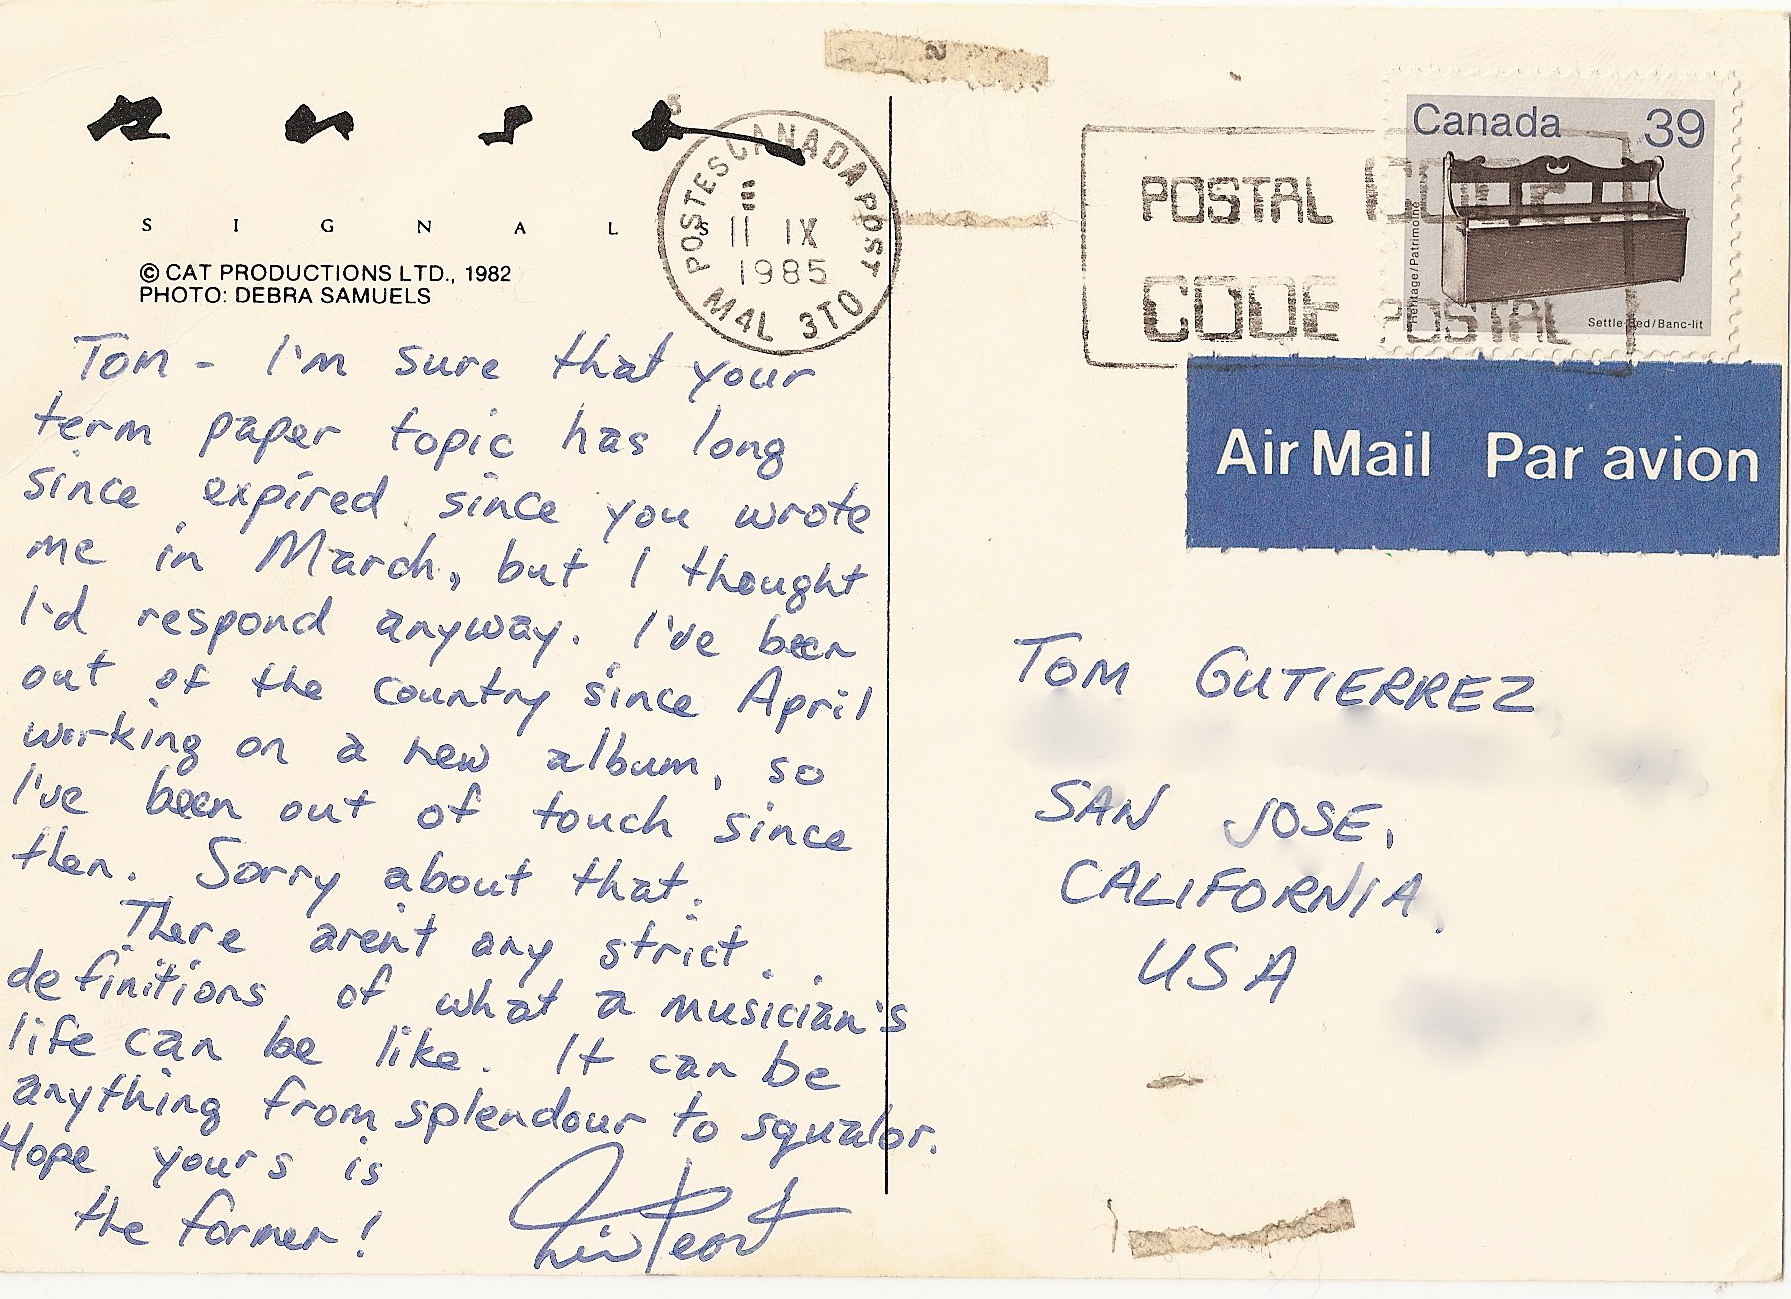 SIGNALS
© CAT PRODUCTIONS LTD., 1982
PHOTO: DEBRA SAMUELS
POSTES CANADA POST
11 IX
1985
M4L 3T0
Tom - I'm sure that your
term paper topic has long
since expired since you wrote
me in March, but I thought
I'd respond anyway. I've been
out of the country since April
working on a new album, so
I've been out of touch since
then. Sorry about that.
There aren't any strict
definitions of what a musician's
life can be like. It can be
anything from splendour to squalor.
Hope yours is
the former!
Neil Peart
POSTAL CODE
CODE POSTAL
Canada 39
Heritage/Patrimoine
Settle-Bed/Banc-lit
Air Mail Par avion
TOM GUTIERREZ
SAN JOSE,
CALIFORNIA,
USA